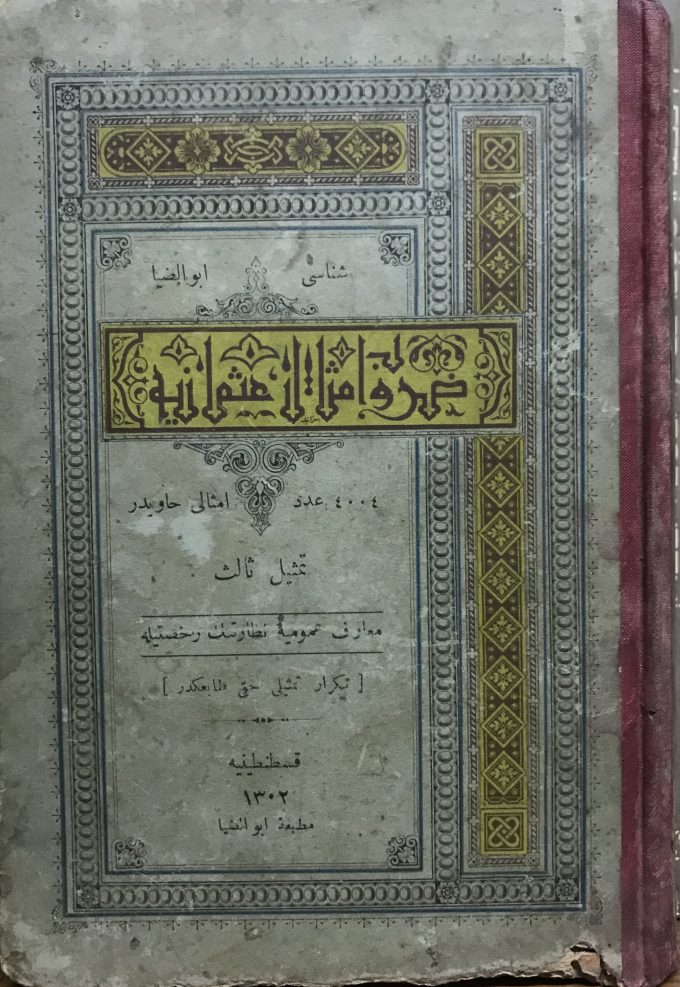 شناسی ابوالضیا
ضروب امثال عثمانیه
٤٠٠٤ عدد امثالی حاویدر
تمثیل ثالث
معارف عمومیهٔ نظارتنك رخصتیله
[ تكرار تمثیلی حق طابعكدر ]
قسطنطینیه
١٣٠٢
مطبعهٔ ابوالضیا